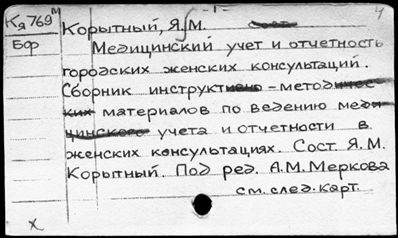 Кя 769 м
- 1 -
4
Корытный, Я. М. сост.
Бор
Медицинский учет и отчетность
городских женских консультаций.
Сборник инструктивно-методичес
ких материалов по ведению меди
цинского учета и отчетности в
женских консультациях. Сост. Я. М.
Корытный. Под ред. А. М. Меркова
см. след. карт.
х